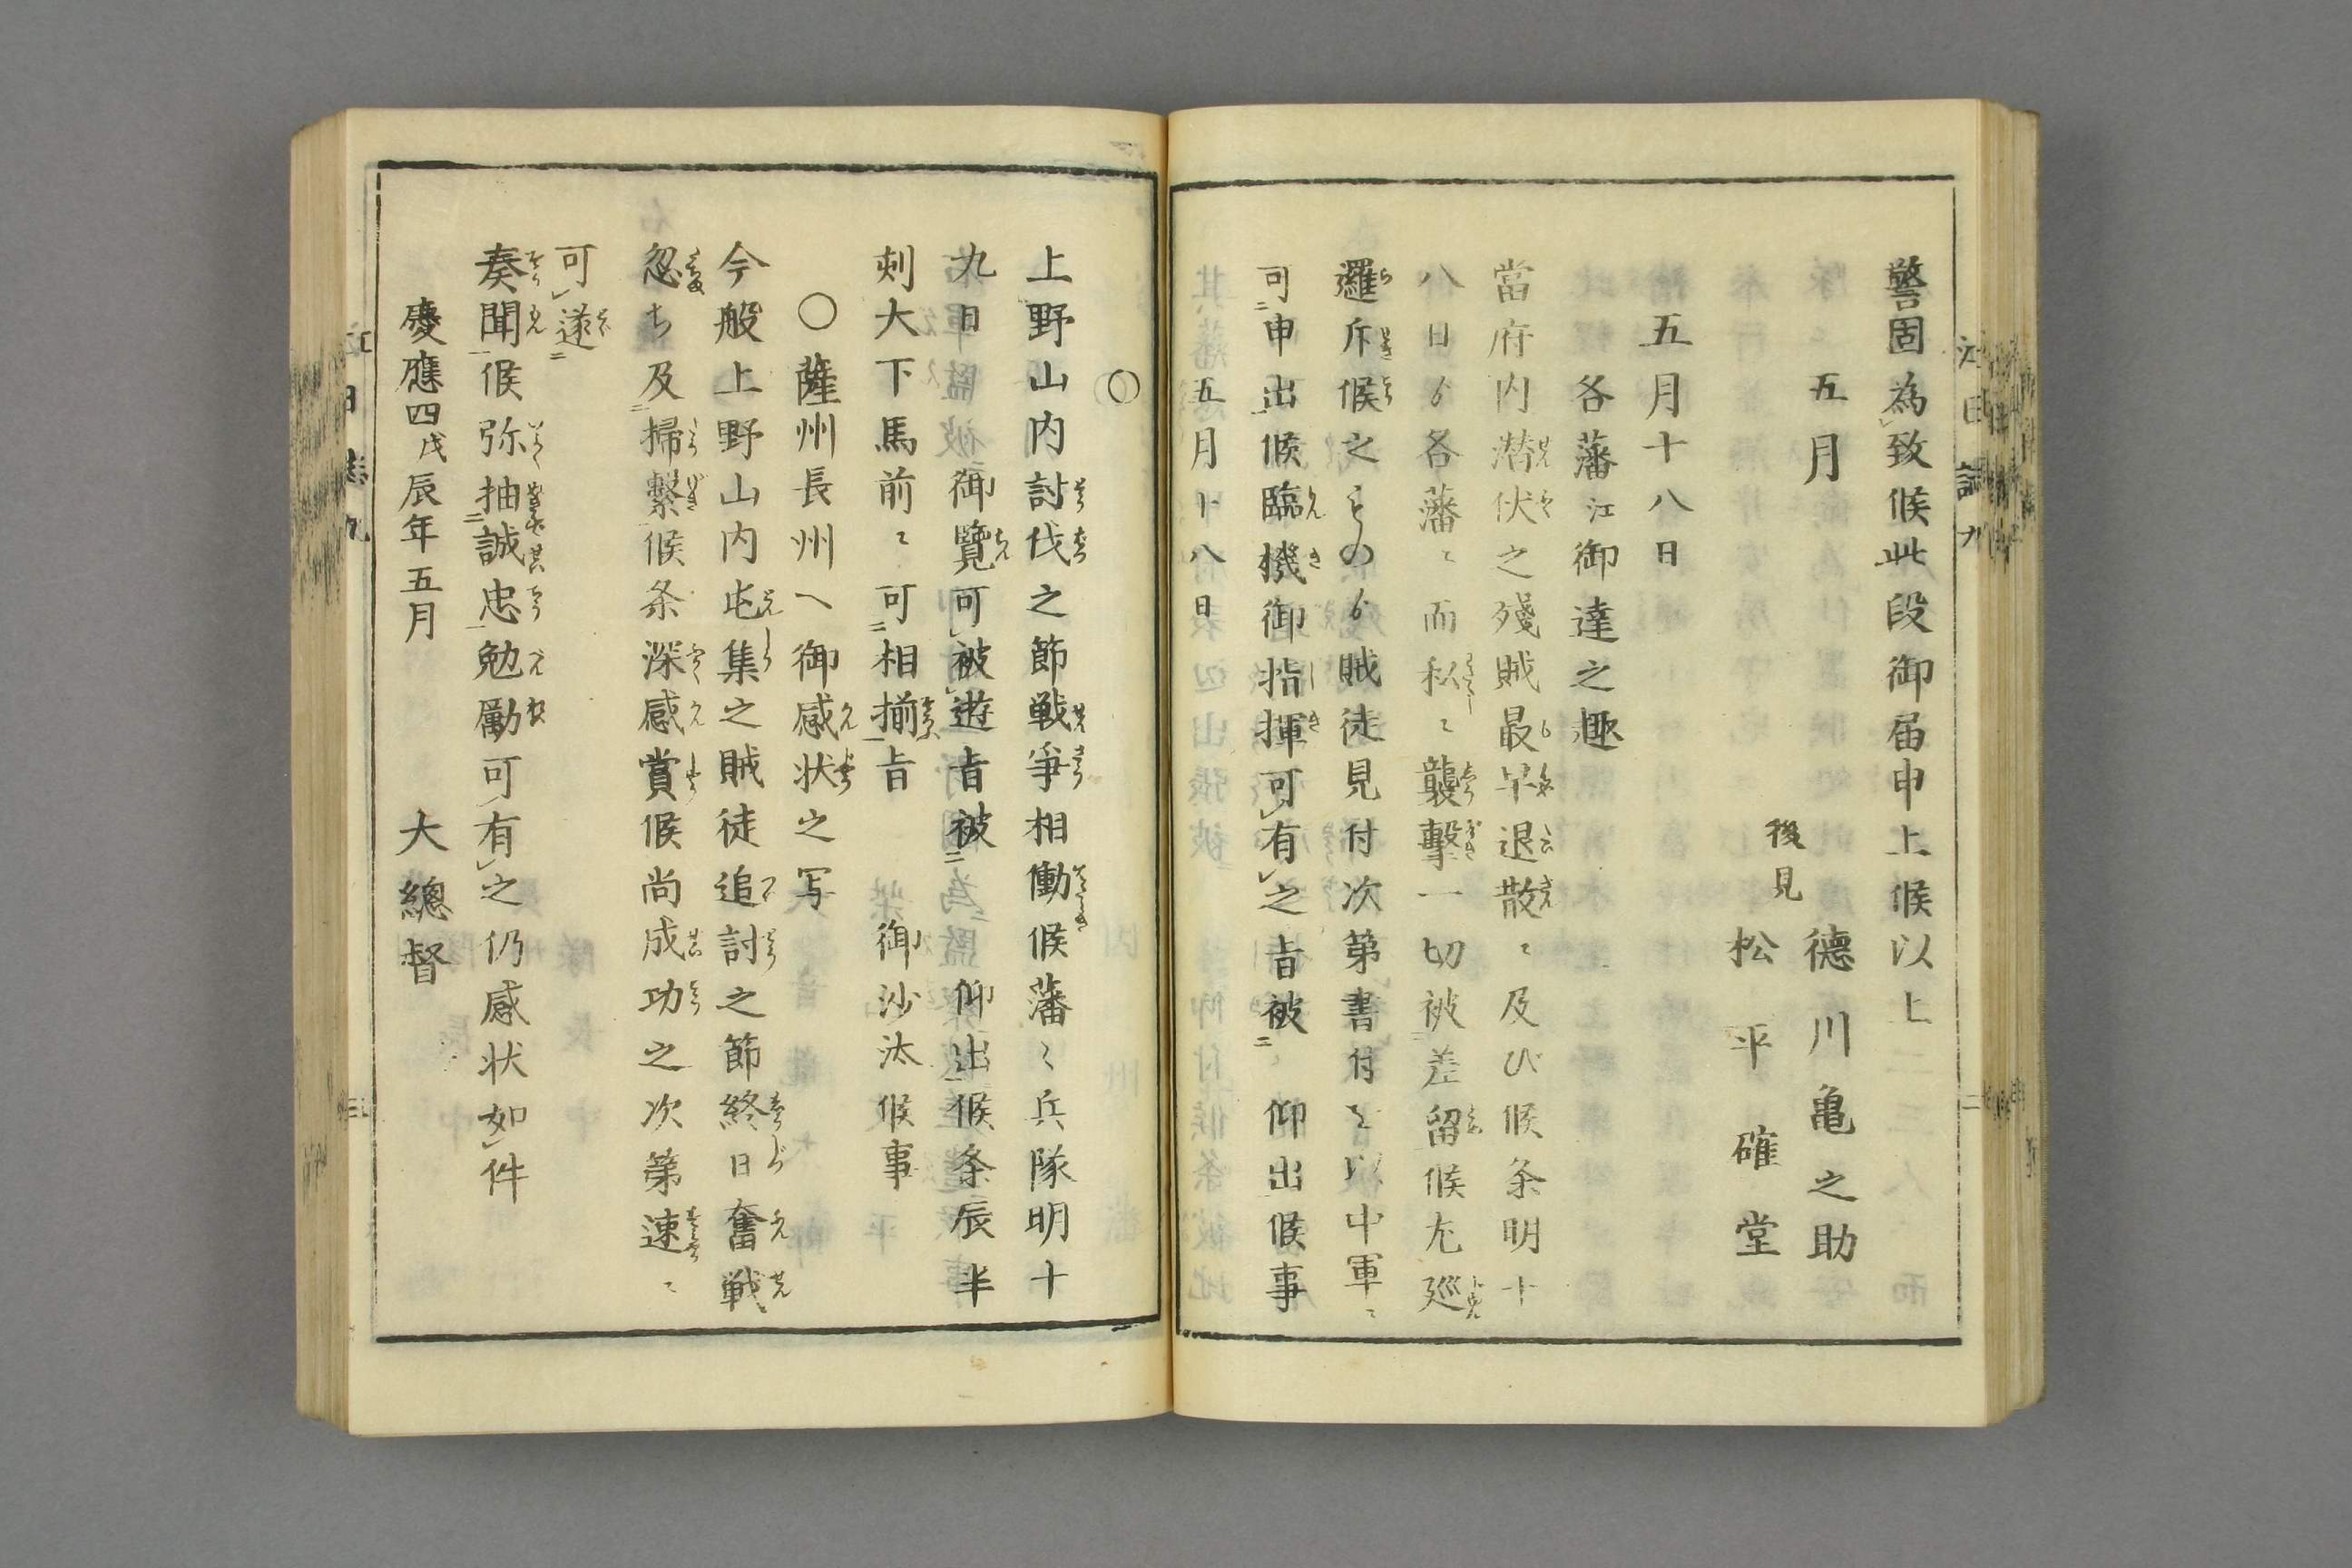 警固為致候此段御届申上候以上
五月
德川亀之助
後見
松平確堂
五月十八日
各藩江御達之趣
當府内潜伏之殘賊最早退散ニ及び候条明十
八日ゟ各藩ニ而私ニ襲擊一切被差留候尤巡
邏斥候之ものゟ賊徒見付次第書付を以中軍ニ
可申出候臨機御指揮可有之旨被 仰出候事
五月十八日
○
上野山内討伐之節戦爭相働候藩々兵隊明十
九日 御覽可被遊旨被 仰出候条辰半
刻大下馬前ニ可相揃旨 御沙汰候事
○薩州長州へ御感状之写
今般上野山内屯集之賊徒追討之節終日奮戦
忽ち及掃繫候条深感賞候尚成功之次第速ニ
可遂
奏聞候弥抽誠忠勉勵可有之仍感状如件
慶應四戊辰年五月 大總督